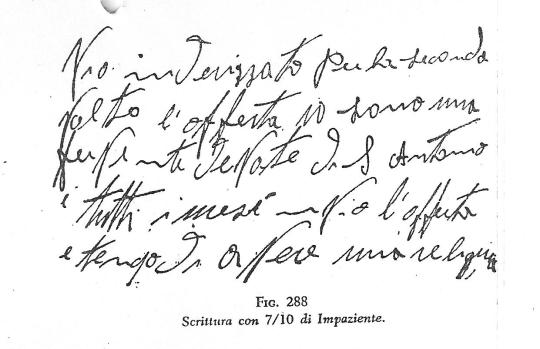 Vio inderizzato per la seconda
volta l'offerta io sono una
fervente devote di S Antonio
e tutti i mesi invio l'offerta
e tengo di avere una reliquia
FIG. 288
Scrittura con 7/10 di Impaziente.